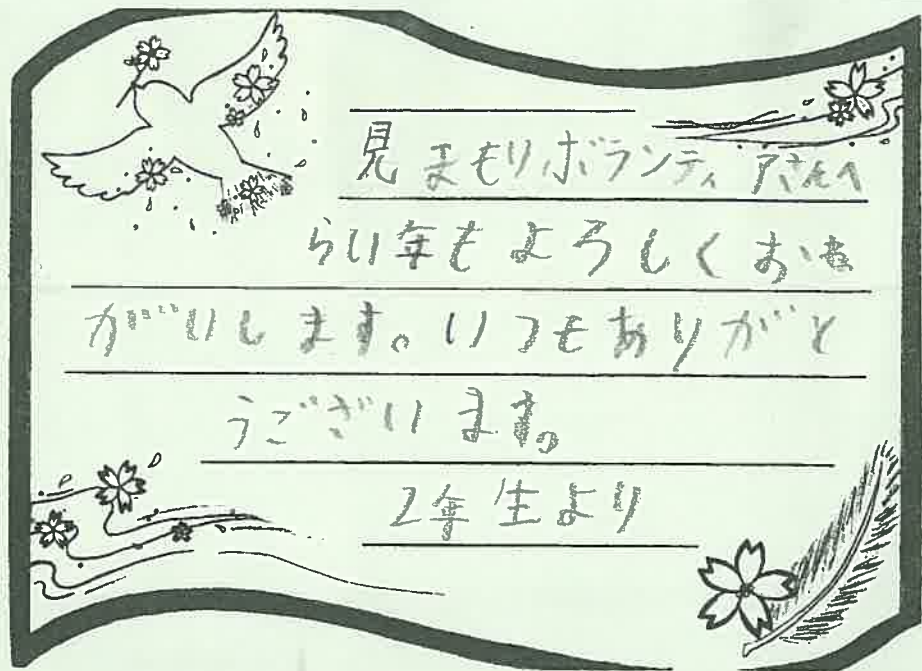 見まもりボランティアさんへ
らい年もよろしくおね
がいします。いつもありがと
うございます。
2年生より